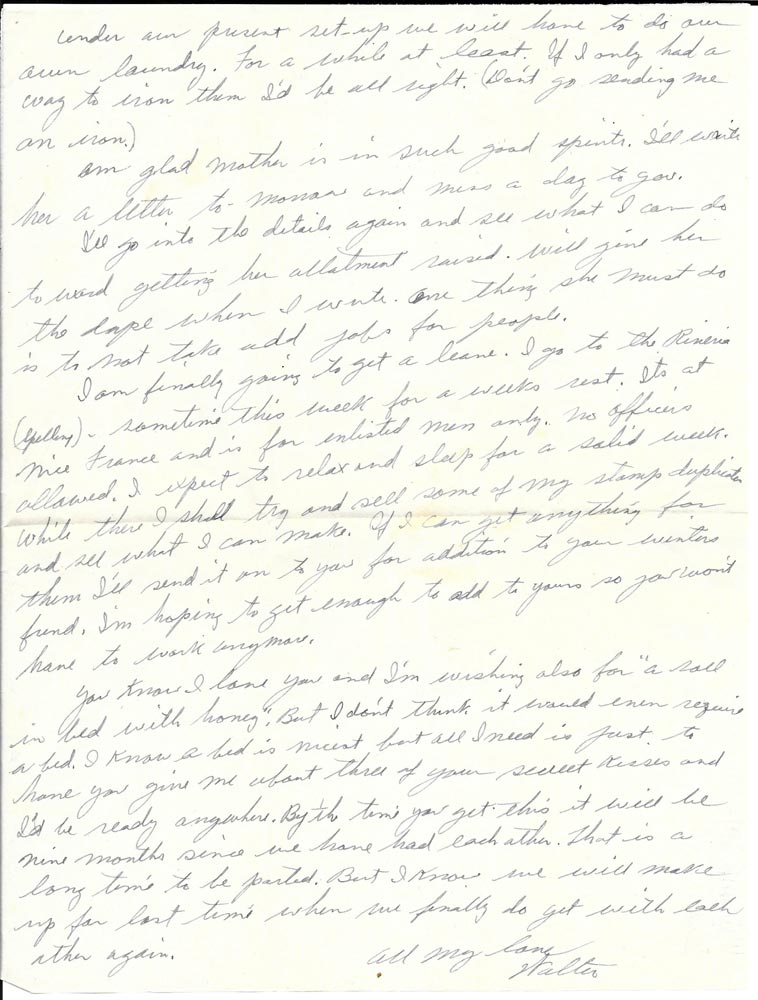 under our present set-up we will have to do our
own laundry. For a while at least. If I only had a
way to iron them I'd be all right. (Don't go sending me
an iron.)
am glad mother is in such good spirits. I'll write
her a letter to-morrow and miss a day to you.
I'll go into the details again and see what I can do
toward getting her allotment raised. Will give her
the dope when I write. One thing she must do
is to not take odd jobs for people.
I am finally going to get a leave. I go to the Rineria
(spelling) - sometime this week for a weeks rest. Its at
Nice France and is for enlisted men only. No officers
allowed. I expect to relax and sleep for a solid week.
While there I shall try and sell some of my stamp duplicates
and see what I can make. If I can get anything for
them I'll send it on to you for addition to your winters
fund. I'm hoping to get enough to add to yours so you won't
have to work anymore.
You know I love you and I'm wishing also for "a roll
in bed with honey". But I don't think it would even require
a bed. I know a bed is nicest but all I need is just to
have you give me about three of your sweet kisses and
I'd be ready anywhere. By the time you get this it will be
nine months since we have had each other. That is a
long time to be parted. But I know we will make
up for lost time when we finally do get with each
other again.
All my love
Walter